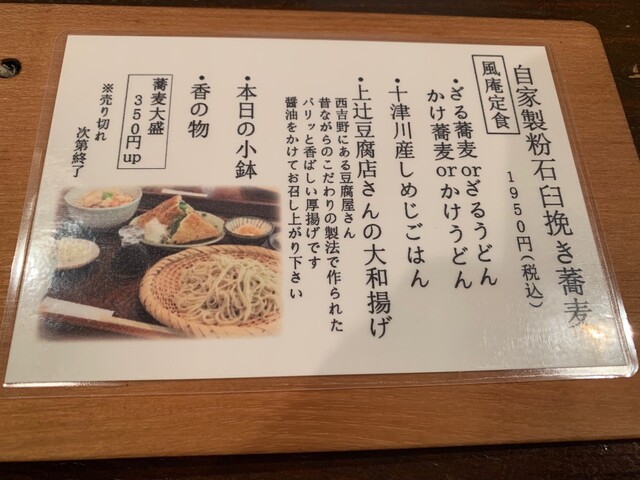 自家製粉石臼挽き蕎麦
風庵定食
1950円(税込)
・ざる蕎麦orざるうどん
かけ蕎麦orかけうどん
・十津川産しめじごはん
・上辻豆腐店さんの大和揚げ
西吉野にある豆腐屋さん
昔ながらのこだわりの製法で作られた
パリッと香ばしい厚揚げです
醤油をかけてお召し上がり下さい
・本日の小鉢
・香の物
蕎麦大盛
350円up
※売り切れ
次第終了